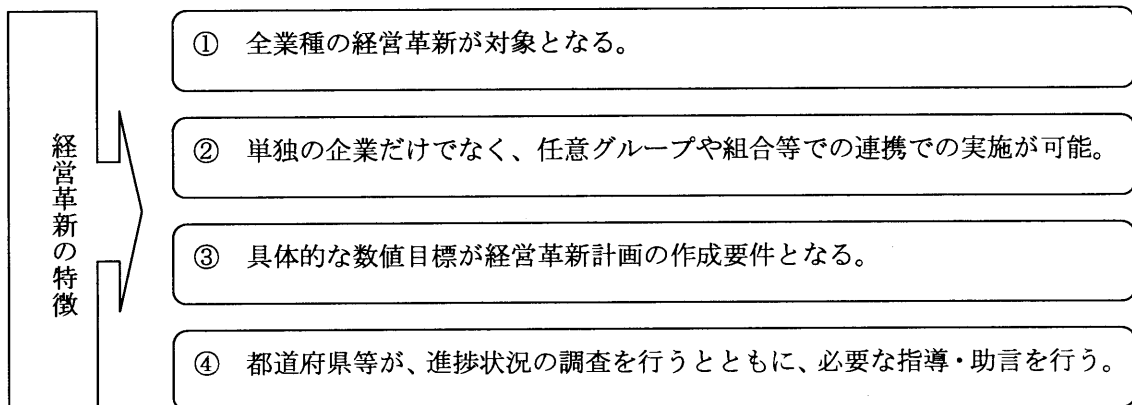 経営革新の特徴
① 全業種の経営革新が対象となる。
② 単独の企業だけでなく、任意グループや組合等での連携での実施が可能。
③ 具体的な数値目標が経営革新計画の作成要件となる。
④ 都道府県等が、進捗状況の調査を行うとともに、必要な指導・助言を行う。